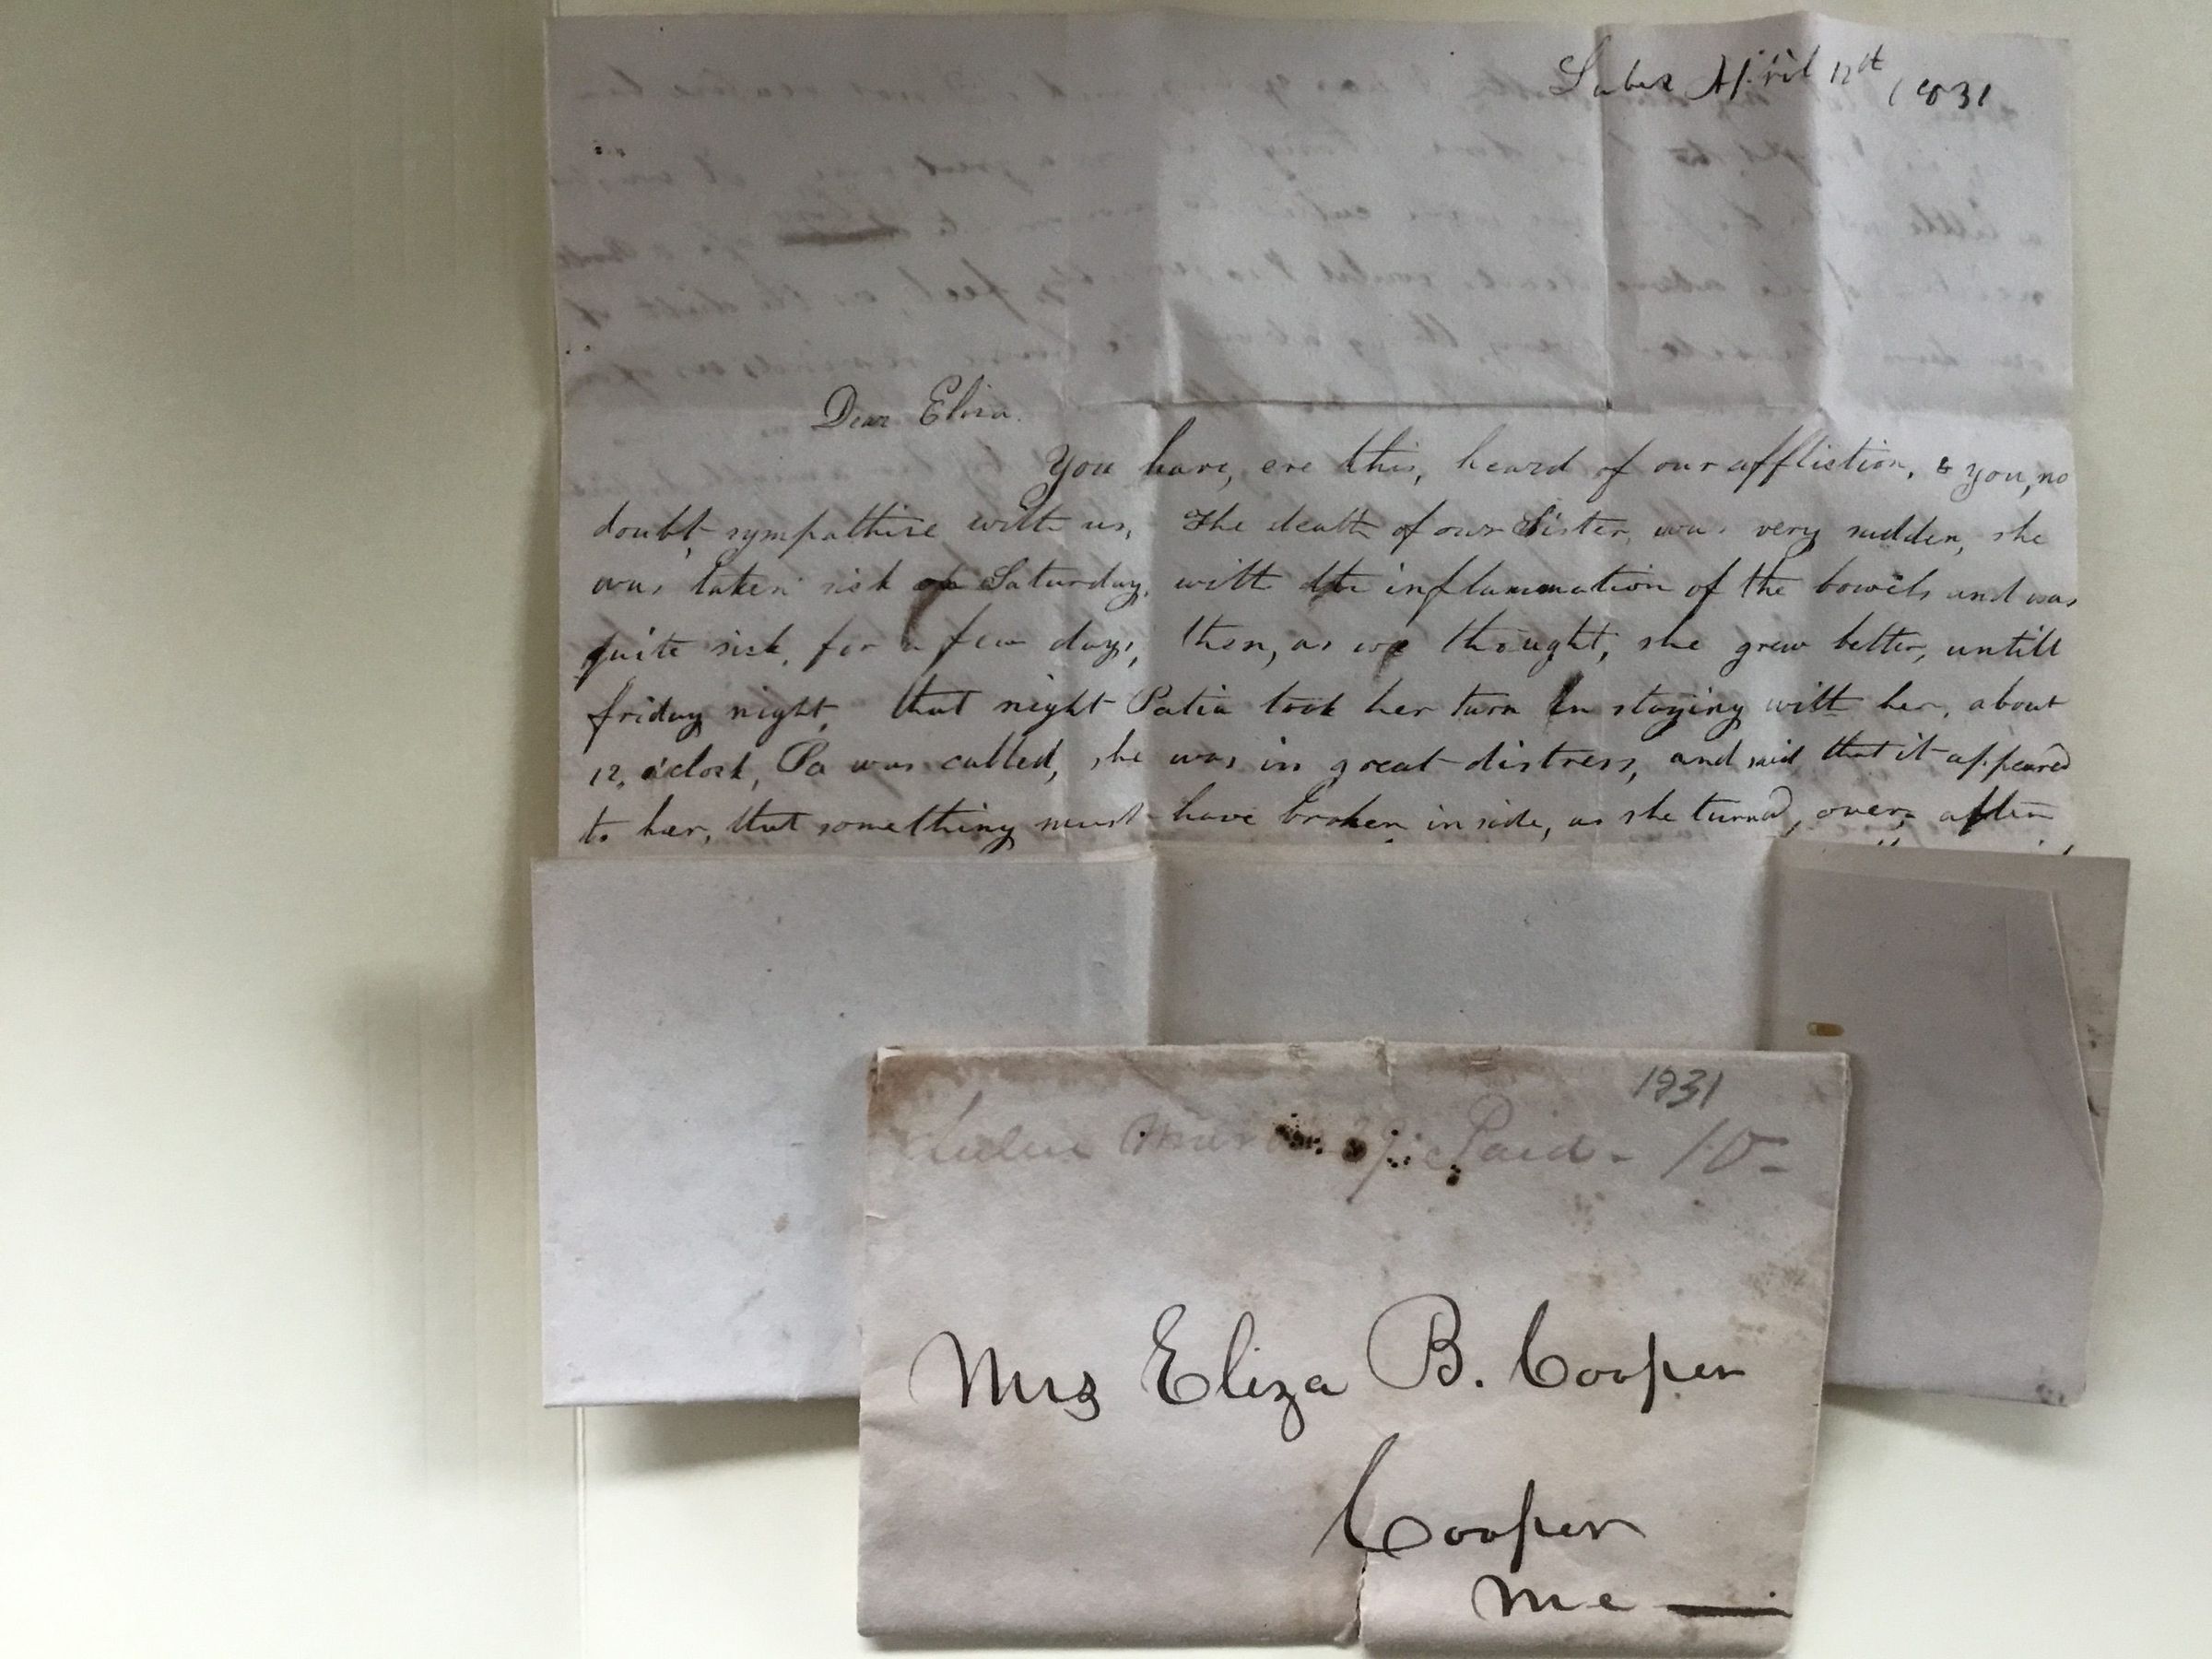 Lubec April 12th 1831
Dear Eliza.
You have, ere this, heard of our affliction, & you, no
doubt, sympathise with us, The death of our Sister, was very sudden, she
was taken sick Saturday, with the inflammation of the bowels and was
quite sick, for a few days, then, as we thought, she grew better, untill
friday night, that night Patia took her turn in staying with her, about
12, o'clock, Pa was called, she was in great distress, and said that it appeared
to her, that something must have broken inside, as she turned, over, after
1831
Paid - 10 -
Mrs Eliza B. Cooper
Cooper
Me —